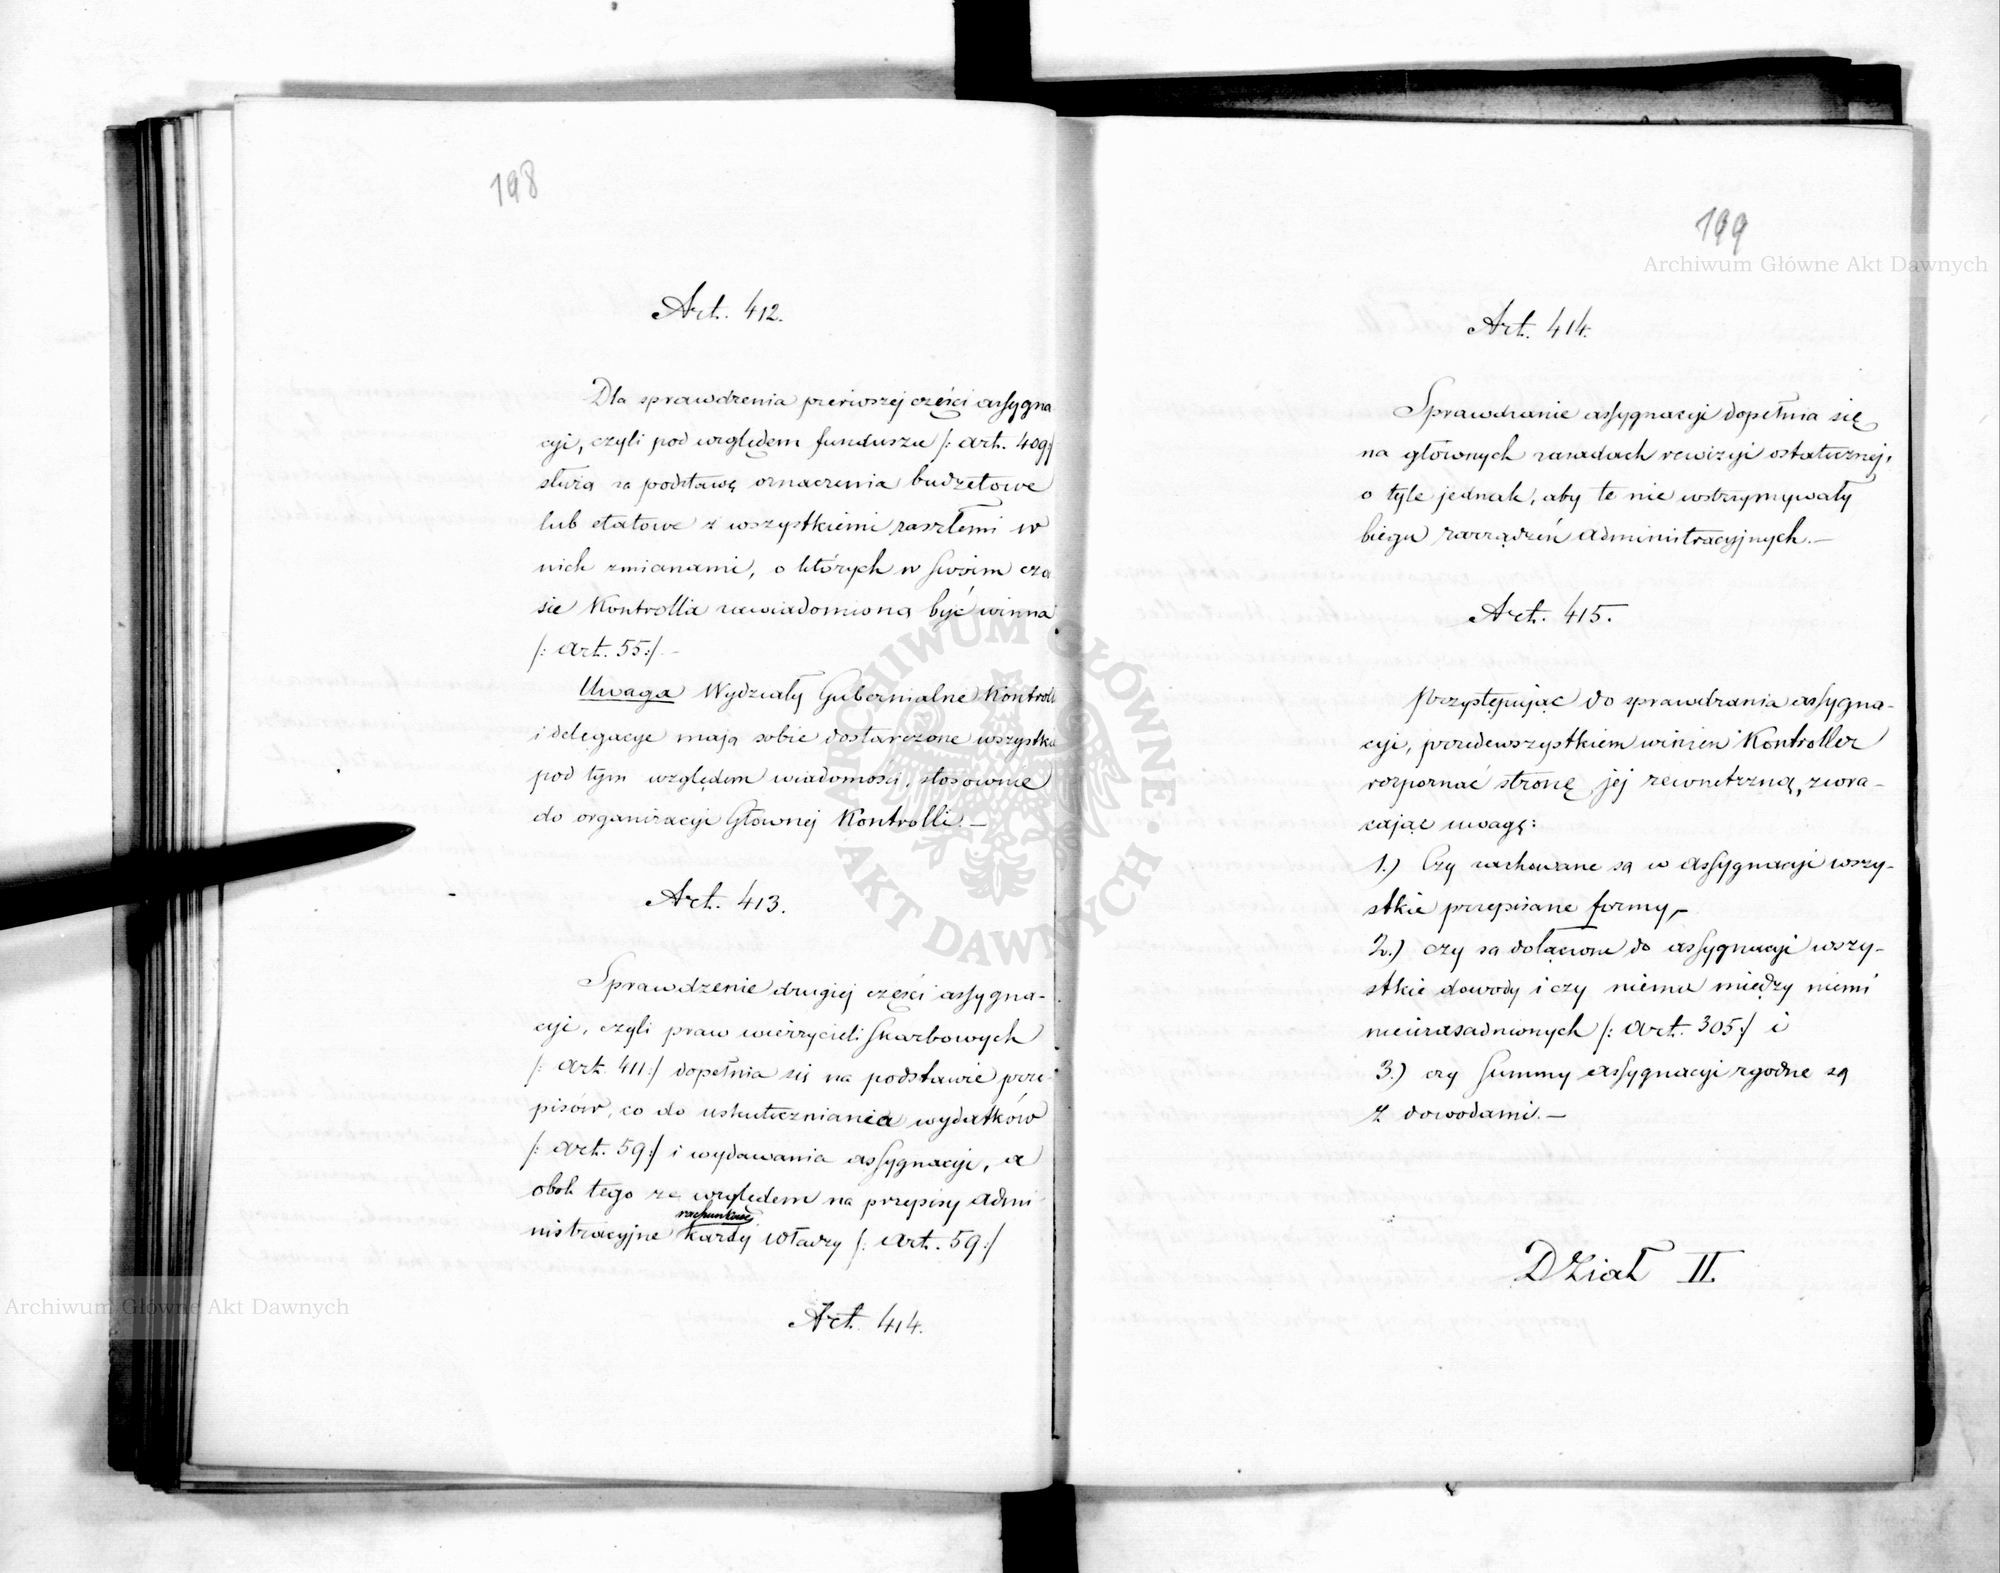 198
Art. 412.
Dla sprawdzenia pierwszej części assygna
cyi, czyli pod względem funduszu /: art. 409:/
służą za podstawę oznaczenia budżetowe
lub etatowe z wszystkiemi zaszłemi w
nich zmianami, o których w swoim cza
sie Kontrolla zawiadomioną być winna
/: art. 55:/. –
Uwaga Wydziały Gubernialne Kontroli
i delegacye mają sobie dostarczone wszystkie
pod tym względem wiadomości, stosownie
do organizacyi Głównej Kontrolli. –
Art. 413.
Sprawdzenie drugiej części assygna-
cyi, czyli praw wierzycieli Skarbowych
/: art. 411:/ dopełnia się na podstawie prze-
pisów, co do uskuteczniania wydatków
/: art. 59:/ i wydawania assygnacyi, a
obok tego ze względem na przepisy admi
rachunkowe
nistracyjne każdy władzy /: art. 59:/
Art. 414.
199
Archiwum Główne Akt Dawnych
Art. 414.
Sprawdzanie assygnacyi dopełnia się
na głównych zasadach rewizyi ostatecznej,
o tyle jednak, aby te nie wstrzymywały
biegu zarządzeń administracyjnych. –
Art. 415.
Przystępując do sprawdzania assygna-
cyi, przedewszystkiem winien Kontroller
rozpoznać stronę jej zewnętrzną, zwra-
cając uwagę:
1.) Czy zachowane są w assygnacyi wszy-
stkie przepisane formy, –
2.) czy są dołączone do assygnacyi wszy-
stkie dowody i czy niema między niemi
nieuzasadnionych /: art. 305:/ i
3.) czy Summy assygnacyi zgodne są
z dowodami. –
Dział II.
ARCHIWUM GŁÓWNE
AKT DAWNYCH
Archiwum Główne Akt Dawnych